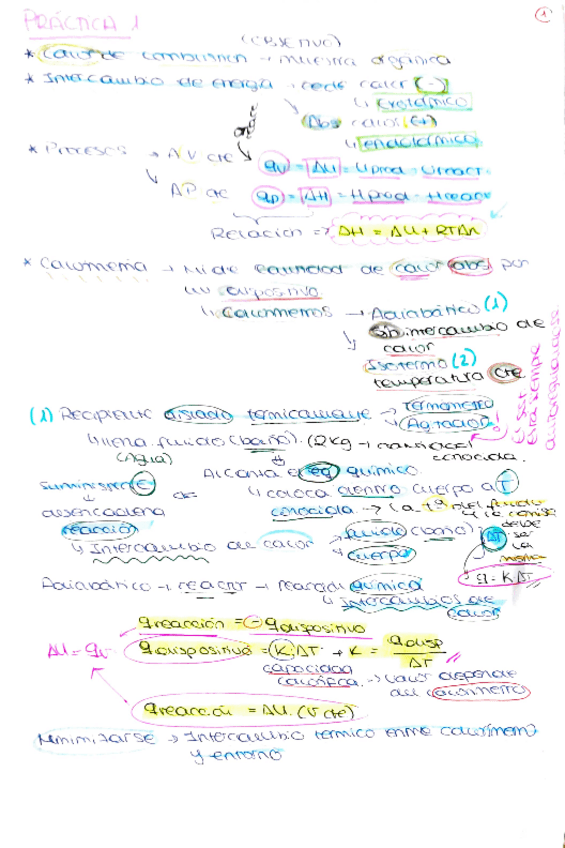 PRÁCTICA 1
1
(OBJETIVO)
* Calor de combustión → muestra orgánica
* Intercambio de energía → cede calor (-)
↳ Exotérmico
Abs calor (+)
↳ endotérmico
* Procesos → ΔV cte qv = ΔU = Uprod - Ureact.
↳ ΔP cte qp = ΔH = Hprod - Hreact
Relación => ΔH = ΔU + RTΔn
* Calorimetría → Mide cantidad de calor abs por
un dispositivo
↳ Calorímetros → Adiabático (1)
Sin intercambio de
calor
Isotermo (2)
temperatura cte
(1) Recipiente aislado térmicamente → Termómetro
Agitador
↳ llena fluido (baño). (2kg → cantidad
conocida.
(Agua)
Alcanza eq químico.
↳ coloca dentro cuerpo a T
conocida → la tª del fluido
desencadena
reacción
↳ Intercambio de calor → fluido (baño)
cuerpo
ΔT
debe
ser
la
misma
Q = K ΔT
Adiabático → reactor → reacción química
↳ Intercambios de
calor
qreacción = - qdispositivo
ΔU = qv
qdispositivo = K·ΔT → K = qdisp / ΔT
capacidad
calorífica → valor depende
del calorímetro
qreacción = ΔU. (V cte)
Minimizarse → Intercambio térmico entre calorímetro
y entorno